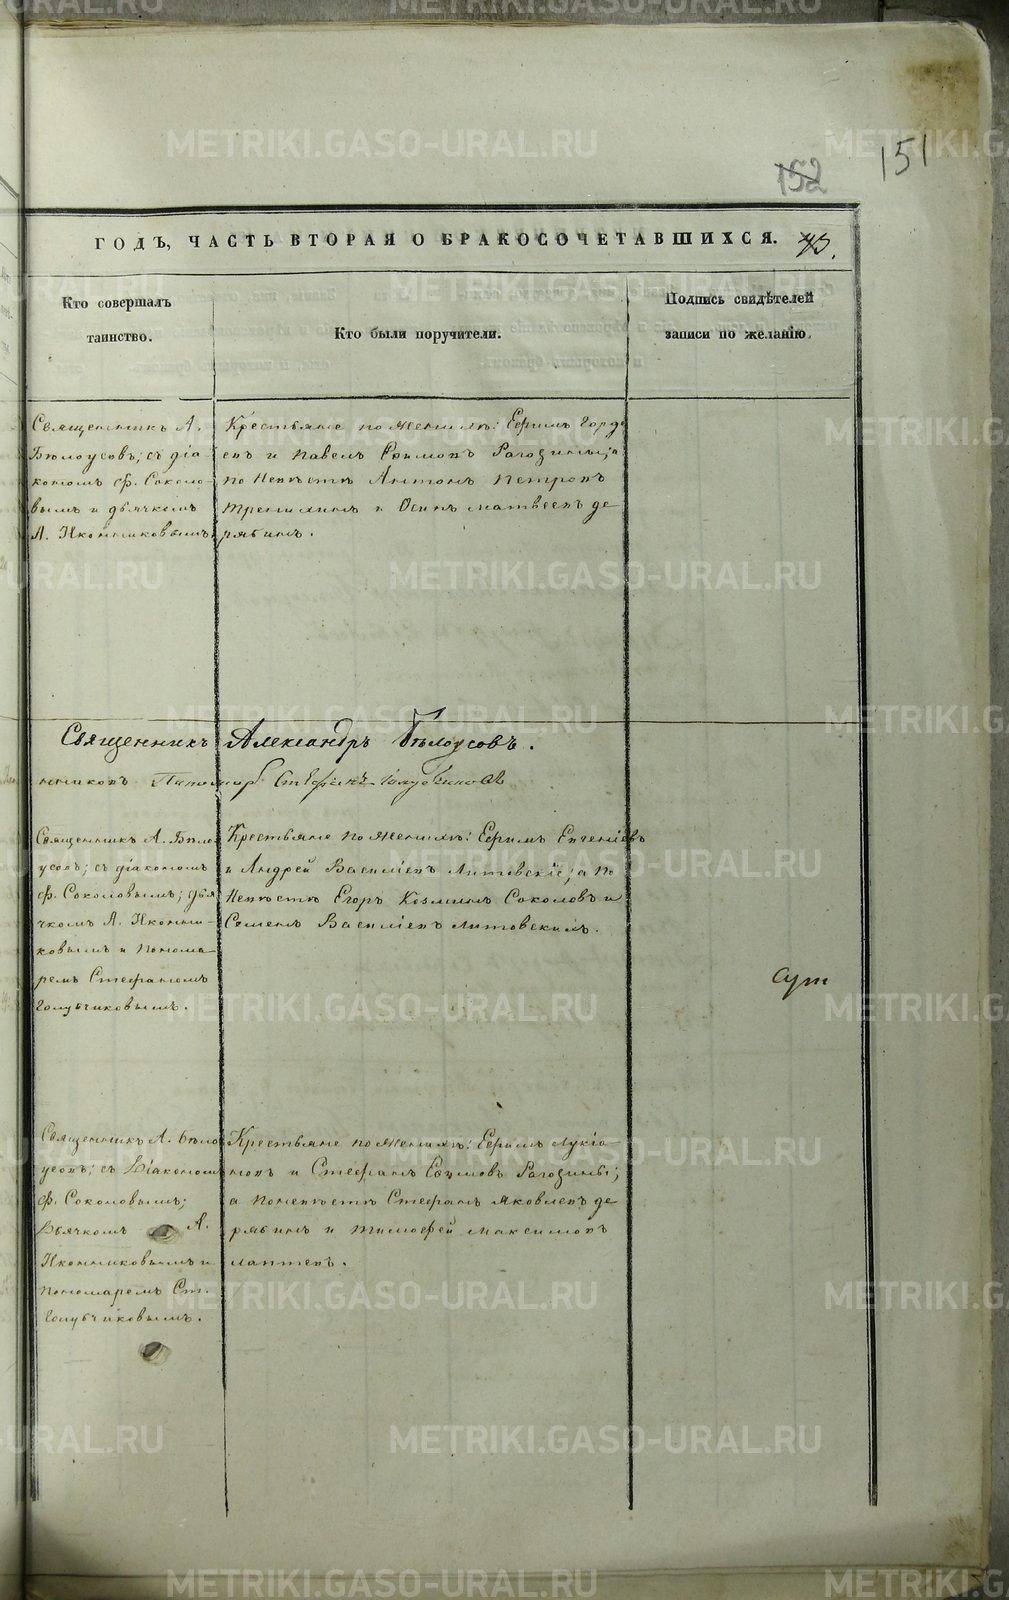 151
152
ГОДЪ, ЧАСТЬ ВТОРАЯ О БРАКОСОЧЕТАВШИХСЯ.
Кто совершалъ
таинство.
Кто были поручители.
Подпись свидѣтелей
записи по желанію.
Священникъ А.
Бѣлоусовъ; съ діа-
кономъ Ф. Соколо-
вымъ и дьячкомъ
А. Иконниковымъ
Крестьяне по женихѣ: Ефимъ Горде
евъ и Павелъ Ефимовъ Рагозины; а
по невѣстѣ Антонъ Петровъ
и Осипъ Матвеевъ Де
рябинъ.
Священникъ Александръ Бѣлоусовъ.
Пономарь Стефанъ Голубчиковъ
Священникъ А. Бѣло
усовъ; съ діакономъ
Ф. Соколовымъ; дья
чкомъ А. Иконни-
ковымъ и понома-
ремъ Стефаномъ
Голубчиковымъ.
Крестьяне по женихѣ: Ефимъ Евгеніевъ
и Андрей Василіевъ Литовскіе; а по
невѣстѣ Егоръ Козминъ Соколовъ и
Семенъ Василіевъ Литовскимъ.
Священникъ А. Бѣло
усовъ; съ Діакономъ
Ф. Соколовымъ;
Дьячкомъ А.
Иконниковымъ и
пономаремъ Ст.
Голубчиковымъ.
Крестьяне по женихѣ: Ефимъ Лукіа-
новъ и Стефанъ Ефимовъ Рагозины;
а по невѣстѣ Стефанъ Яковлевъ Де
рябинъ и Тимофей Максимовъ
Лаптевъ.
METRIKI.GASO-URAL.RU